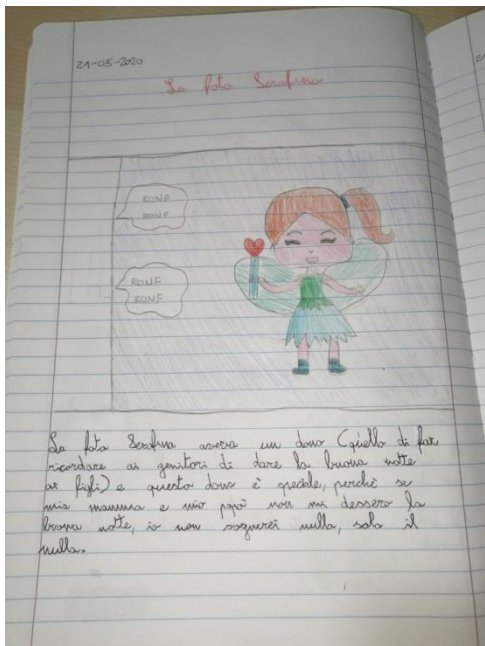 21-05-2020
La fata Serafina
RONF
RONF
RONF
RONF
La fata Serafina aveva un dono (quello di far
ricordare ai genitori di dare la buona notte
ai figli) e questo dono è speciale, perché se
mia mamma e mio papà non mi dessero la
buona notte, io non sognerei nulla, solo il
nulla.